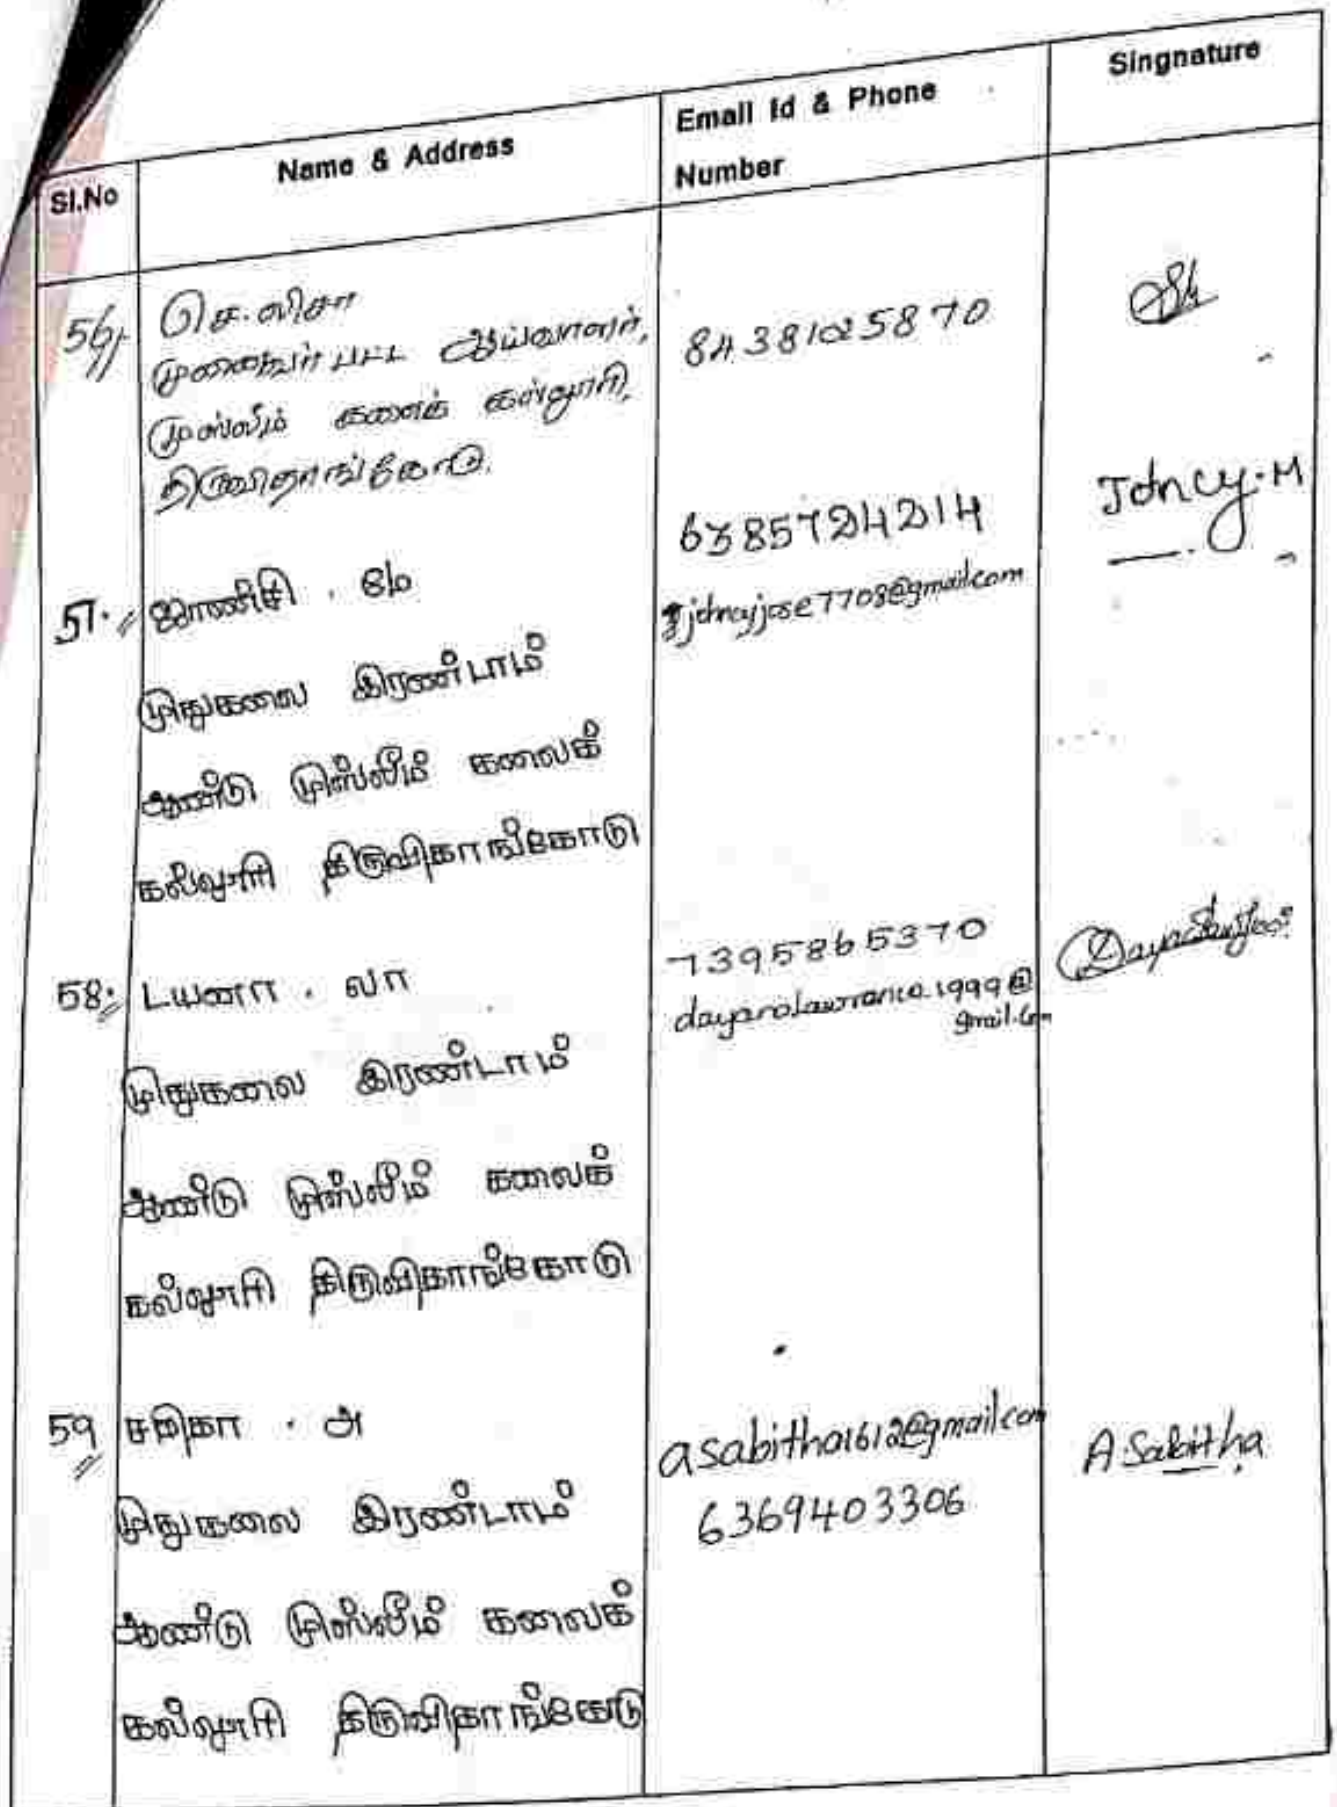 Sl.No
Name & Address
Email Id & Phone
Number
Singnature
56
செ.லிசா
முனைவர் பட்ட ஆய்வாளர்,
முஸ்லீம் கலைக் கல்லூரி,
திருவிதாங்கோடு.
8438125870
57.
ஜாண்சி . மே
முதுகலை இரண்டாம்
ஆண்டு முஸ்லீம் கலைக்
கல்லூரி திருவிதாங்கோடு
6385724214
johncyjose7708@gmail.com
Johncy.M
58.
டயனா . லா
முதுகலை இரண்டாம்
ஆண்டு முஸ்லீம் கலைக்
கல்லூரி திருவிதாங்கோடு
7395865370
dayanalawrance1999@
gmail.com
59
சபிதா . அ
முதுகலை இரண்டாம்
ஆண்டு முஸ்லீம் கலைக்
கல்லூரி திருவிதாங்கோடு
asabitha1612@gmail.com
6369403306
A.Sabitha